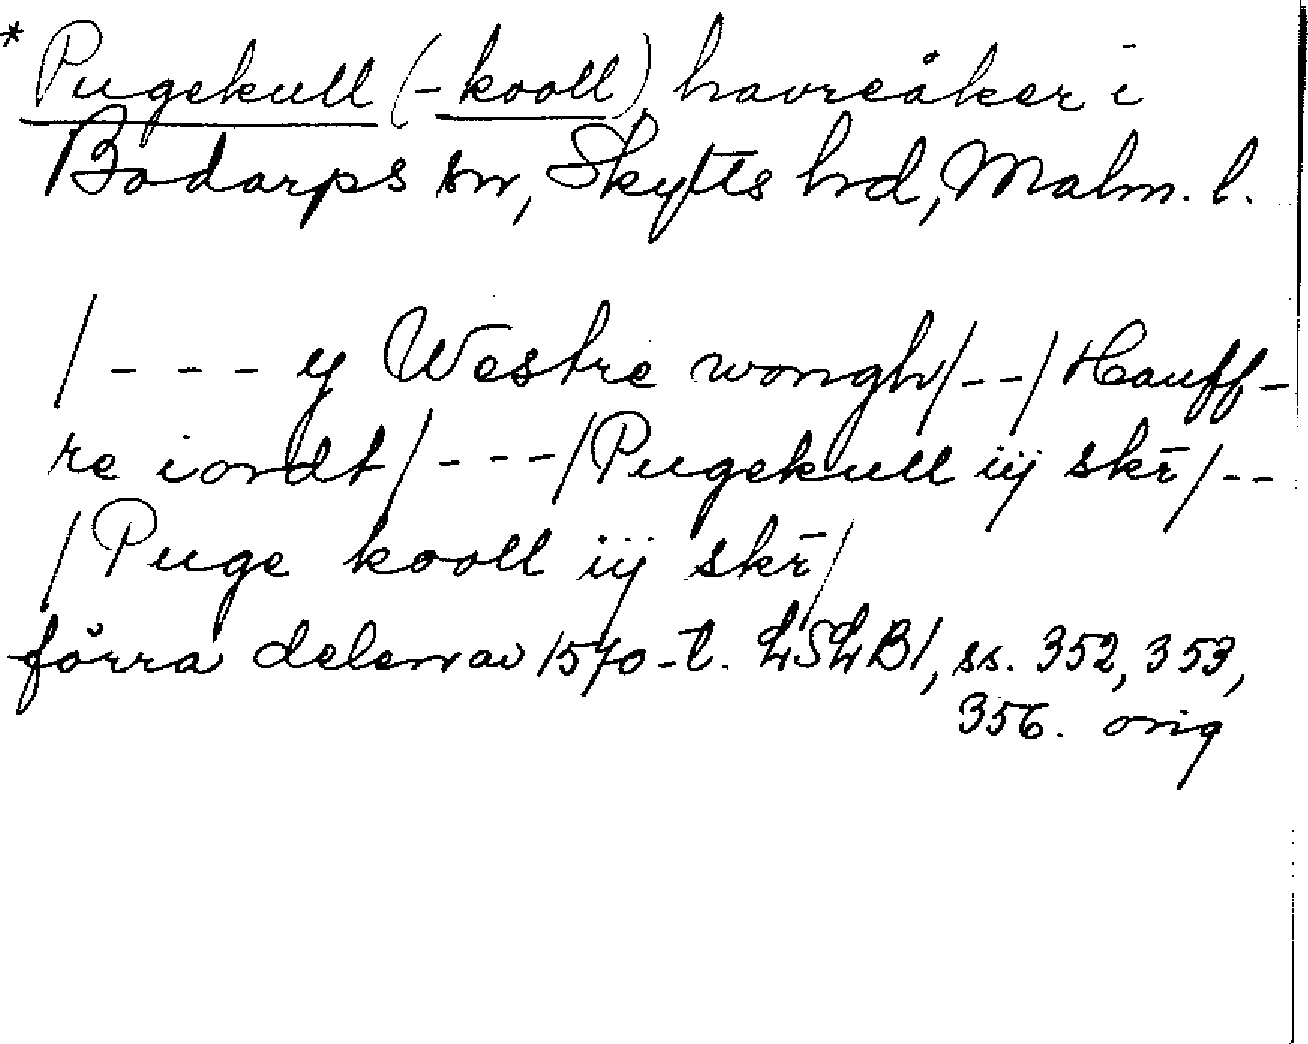 * Pugekull (-kooll), havreåker i
Bodarps sn, Skytts hd, Malm. l.
/ - - - y Westre wongh/ - - / Hauff-
re iordt / - - - / Pugekull iij skr̄ / - -
/ Puge kooll iij skr̄ /
förra delen av 1570-t. LSLB1, ss. 352, 353,
356. orig